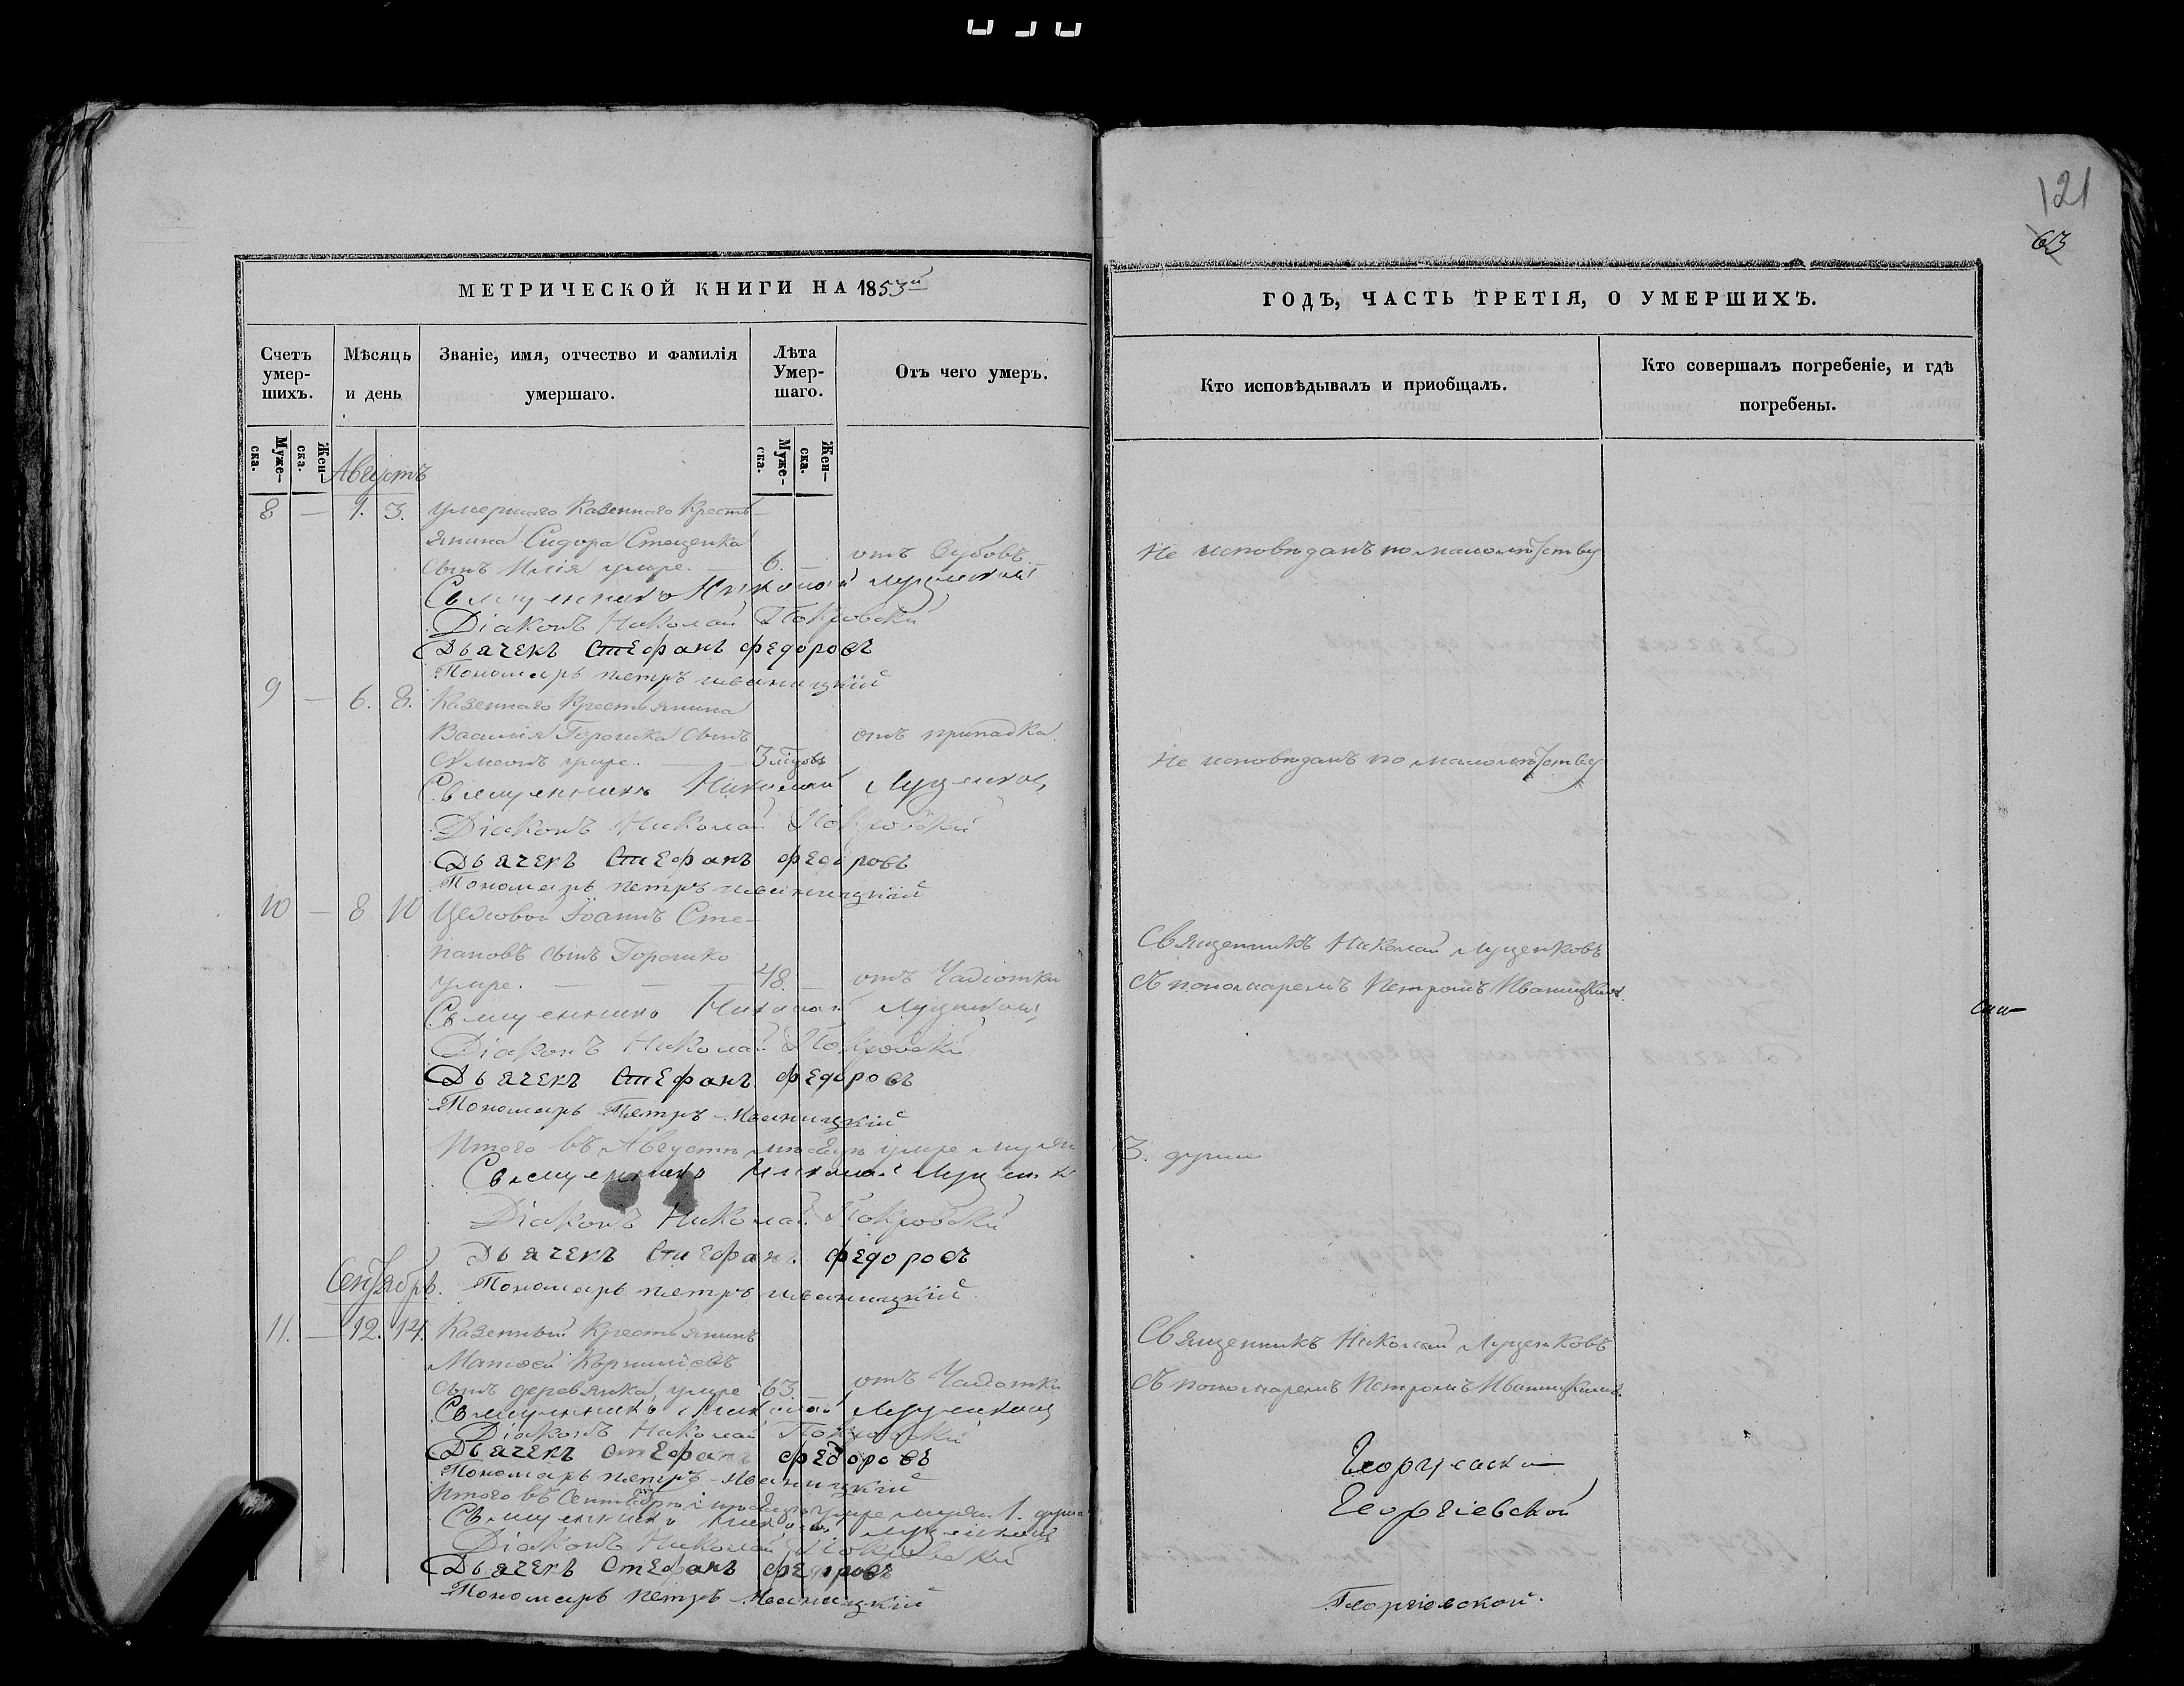 121
63
МЕТРИЧЕСКОЙ КНИГИ НА 1853й
Счетъ умер-шихъ.
Мѣсяцъ и день
Званіе, имя, отчество и фамилія умершаго.
Лѣта Умер-шаго.
Отъ чего умеръ.
Муже-ска.
Жен-ска.
Муже-ска.
Жен-ска.
Августъ
8 — 1. 3. умершаго Казеннаго Кресть-
янина Сидора Стеценка
сынъ Илія умре. — 6. — отъ Зубовъ
Священникъ Николай Луценковъ
Діаконъ Николай Покровскій
Дьячекъ Стефанъ Федоровъ
Пономарь Петръ Иваницкій
9 — 6. 8. Казеннаго Крестьянина
Василія Горошка сынъ отъ припадка
Сѵмеонъ умре. — 3
Священникъ Николай Луценков
Діаконъ Николай Покровскій
Дьячекъ Стефанъ Федоровъ
Пономарь Петръ Иваницкій
10 — 8 10 Цеховой Іоаннъ Сте-
пановъ сынъ Горошко
умре. — — — 48. — отъ Чахотки
Священникъ Николай Луценков
Діаконъ Николай Покровскій
Дьячекъ Стефанъ Федоровъ
Пономарь Петръ Иваницкій
Итого въ Августѣ мѣсяцѣ умре
Священникъ Николай Луценк
Діаконъ Николай Покровскій
Дьячекъ Стефанъ Федоровъ
Сентябрь. Пономарь Петръ Иваницкій
11. — 12. 14. Казенный Крестьянинъ
Матѳей Корниліевъ
сынъ деревянка умре 63. — отъ Чахотки
Священникъ Николай Луценковъ
Діаконъ Николай Покровскій
Дьячекъ Стефанъ Федоровъ
Пономарь Петръ Иваницкій
Итого въ Сентябрѣ мѣсяцѣ умре 1. душа
Священникъ Николай Луценковъ
Діаконъ Николай Покровскій
Дьячекъ Стефанъ Федоровъ
Пономарь Петръ Иваницкій
ГОДЪ, ЧАСТЬ ТРЕТІЯ, О УМЕРШИХЪ.
Кто исповѣдывалъ и пріобщалъ.
Кто совершалъ погребеніе, и гдѣ погребены.
Не исповѣданъ по малолѣтству
Не исповѣданъ по малолѣтству
Священникъ Николай Луценковъ
Съ пономаремъ Петромъ Иваницкимъ.
3. души
Священникъ Николай Луценковъ
Съ пономаремъ Петромъ Иваницкимъ
Георгіевской
Георгіевской.